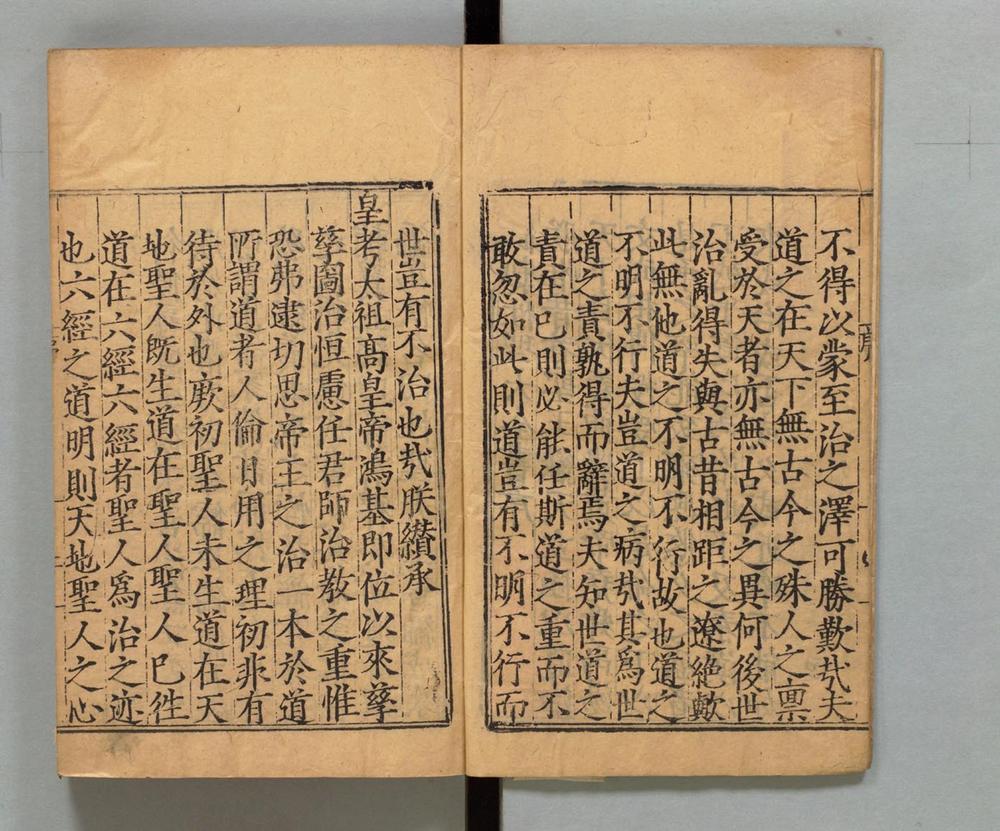 不得以蒙至治之澤可勝歎㢤夫
道之在天下無古今之殊人之禀
受於天者亦無古今之異何後世
治亂得失與古昔相距之遼絶歟
此無他道之不明不行故也道之
不明不行夫豈道之病㢤其爲世
道之責孰得而辭焉夫知世道之
責在已則必能任斯道之重而不
敢忽如此則道豈有不明不行而
世豈有不治也㢤朕纘承
皇考太祖髙皇帝鴻基即位以來孳
孳圖治恒慮任君師治教之重惟
恐弗逮切思帝王之治一本於道
所謂道者人倫日用之理初非有
待於外也厥初聖人未生道在天
地聖人旣生道在聖人聖人已徃
道在六經六經者聖人爲治之迹
也六經之道明則天地聖人之心